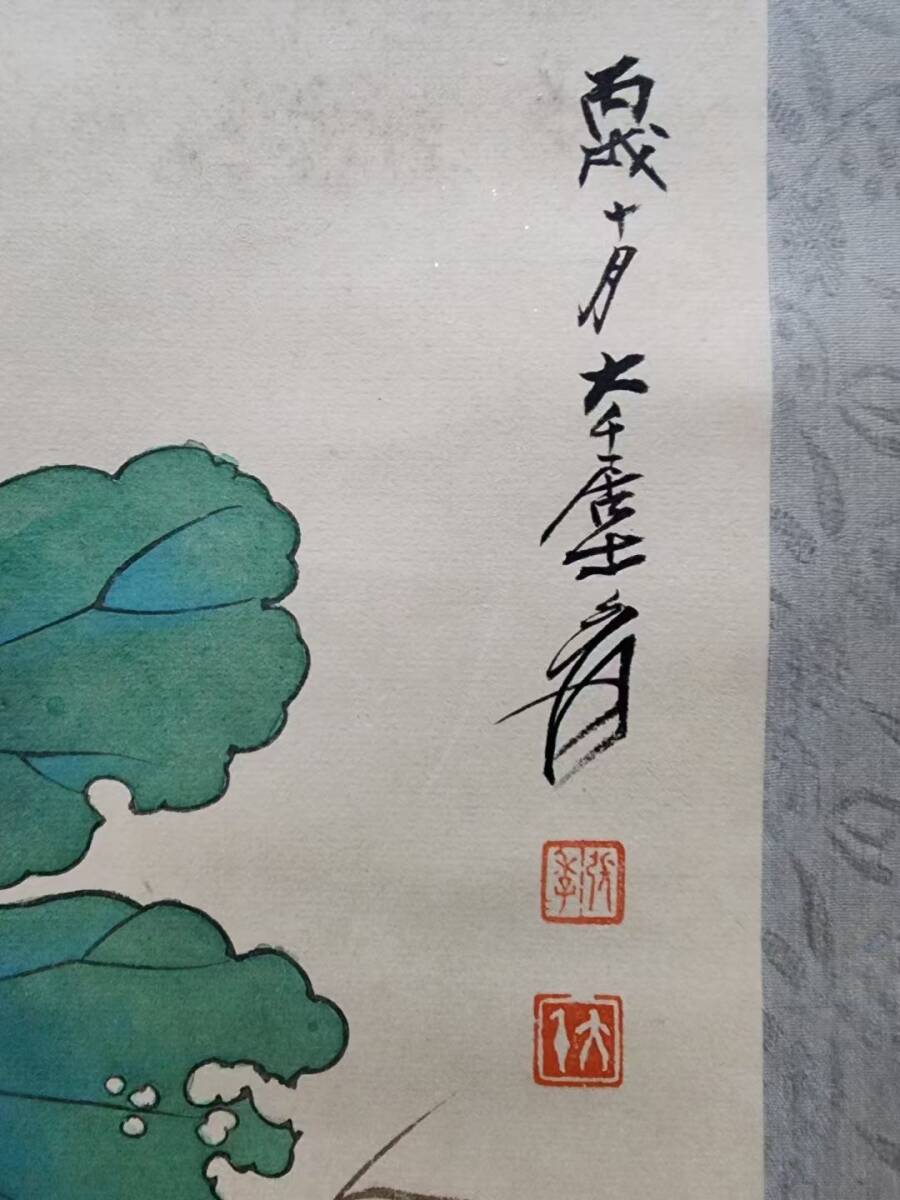 丙戌十月大千居士爰
張季
大千